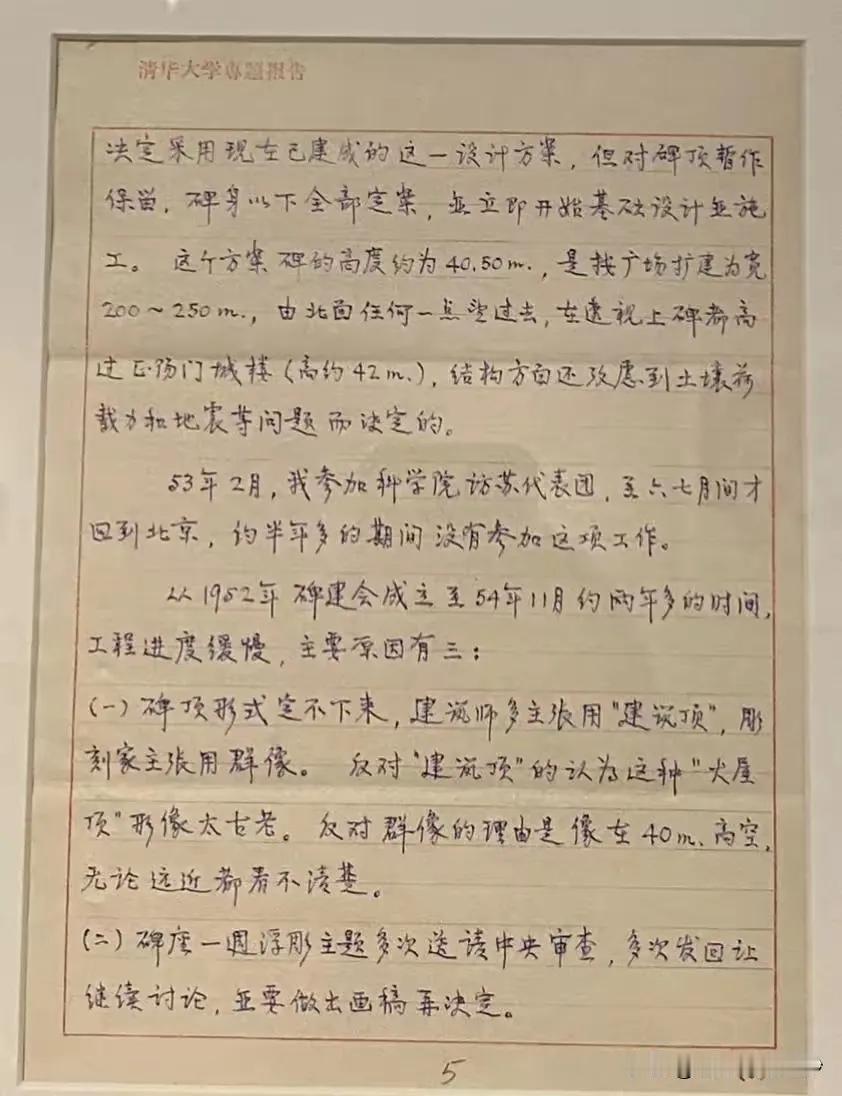 清华大学專題报告
决定采用现在已建成的这一设计方案，但对碑顶暂作
保留，碑身以下全部定案，並立即开始基础设计並施
工。 这个方案碑的高度约为40.50m.，是按广场扩建为宽
200～250m.，由北面任何一点望过去，在透视上碑都高
过正阳门城楼（高约42m.），结构方面还攷虑到土壤荷
载力和地震等问题而决定的。
53年2月，我参加科学院访苏代表团，至六七月间才
回到北京，约半年多的期间没有参加这项工作。
从1952年碑建会成立至54年11月约两年多的时间，
工程进度缓慢，主要原因有三：
（一）碑顶形式定不下来，建筑师多主张用"建筑顶"，彫
刻家主张用群像。 反对"建筑顶"的认为这种"大屋
顶"形像太古老。 反对群像的理由是像在40m.高空，
无论远近都看不清楚。
（二）碑座一週浮彫主题多次送请中央审查，多次发回让
继续讨论，並要做出画稿再决定。
5